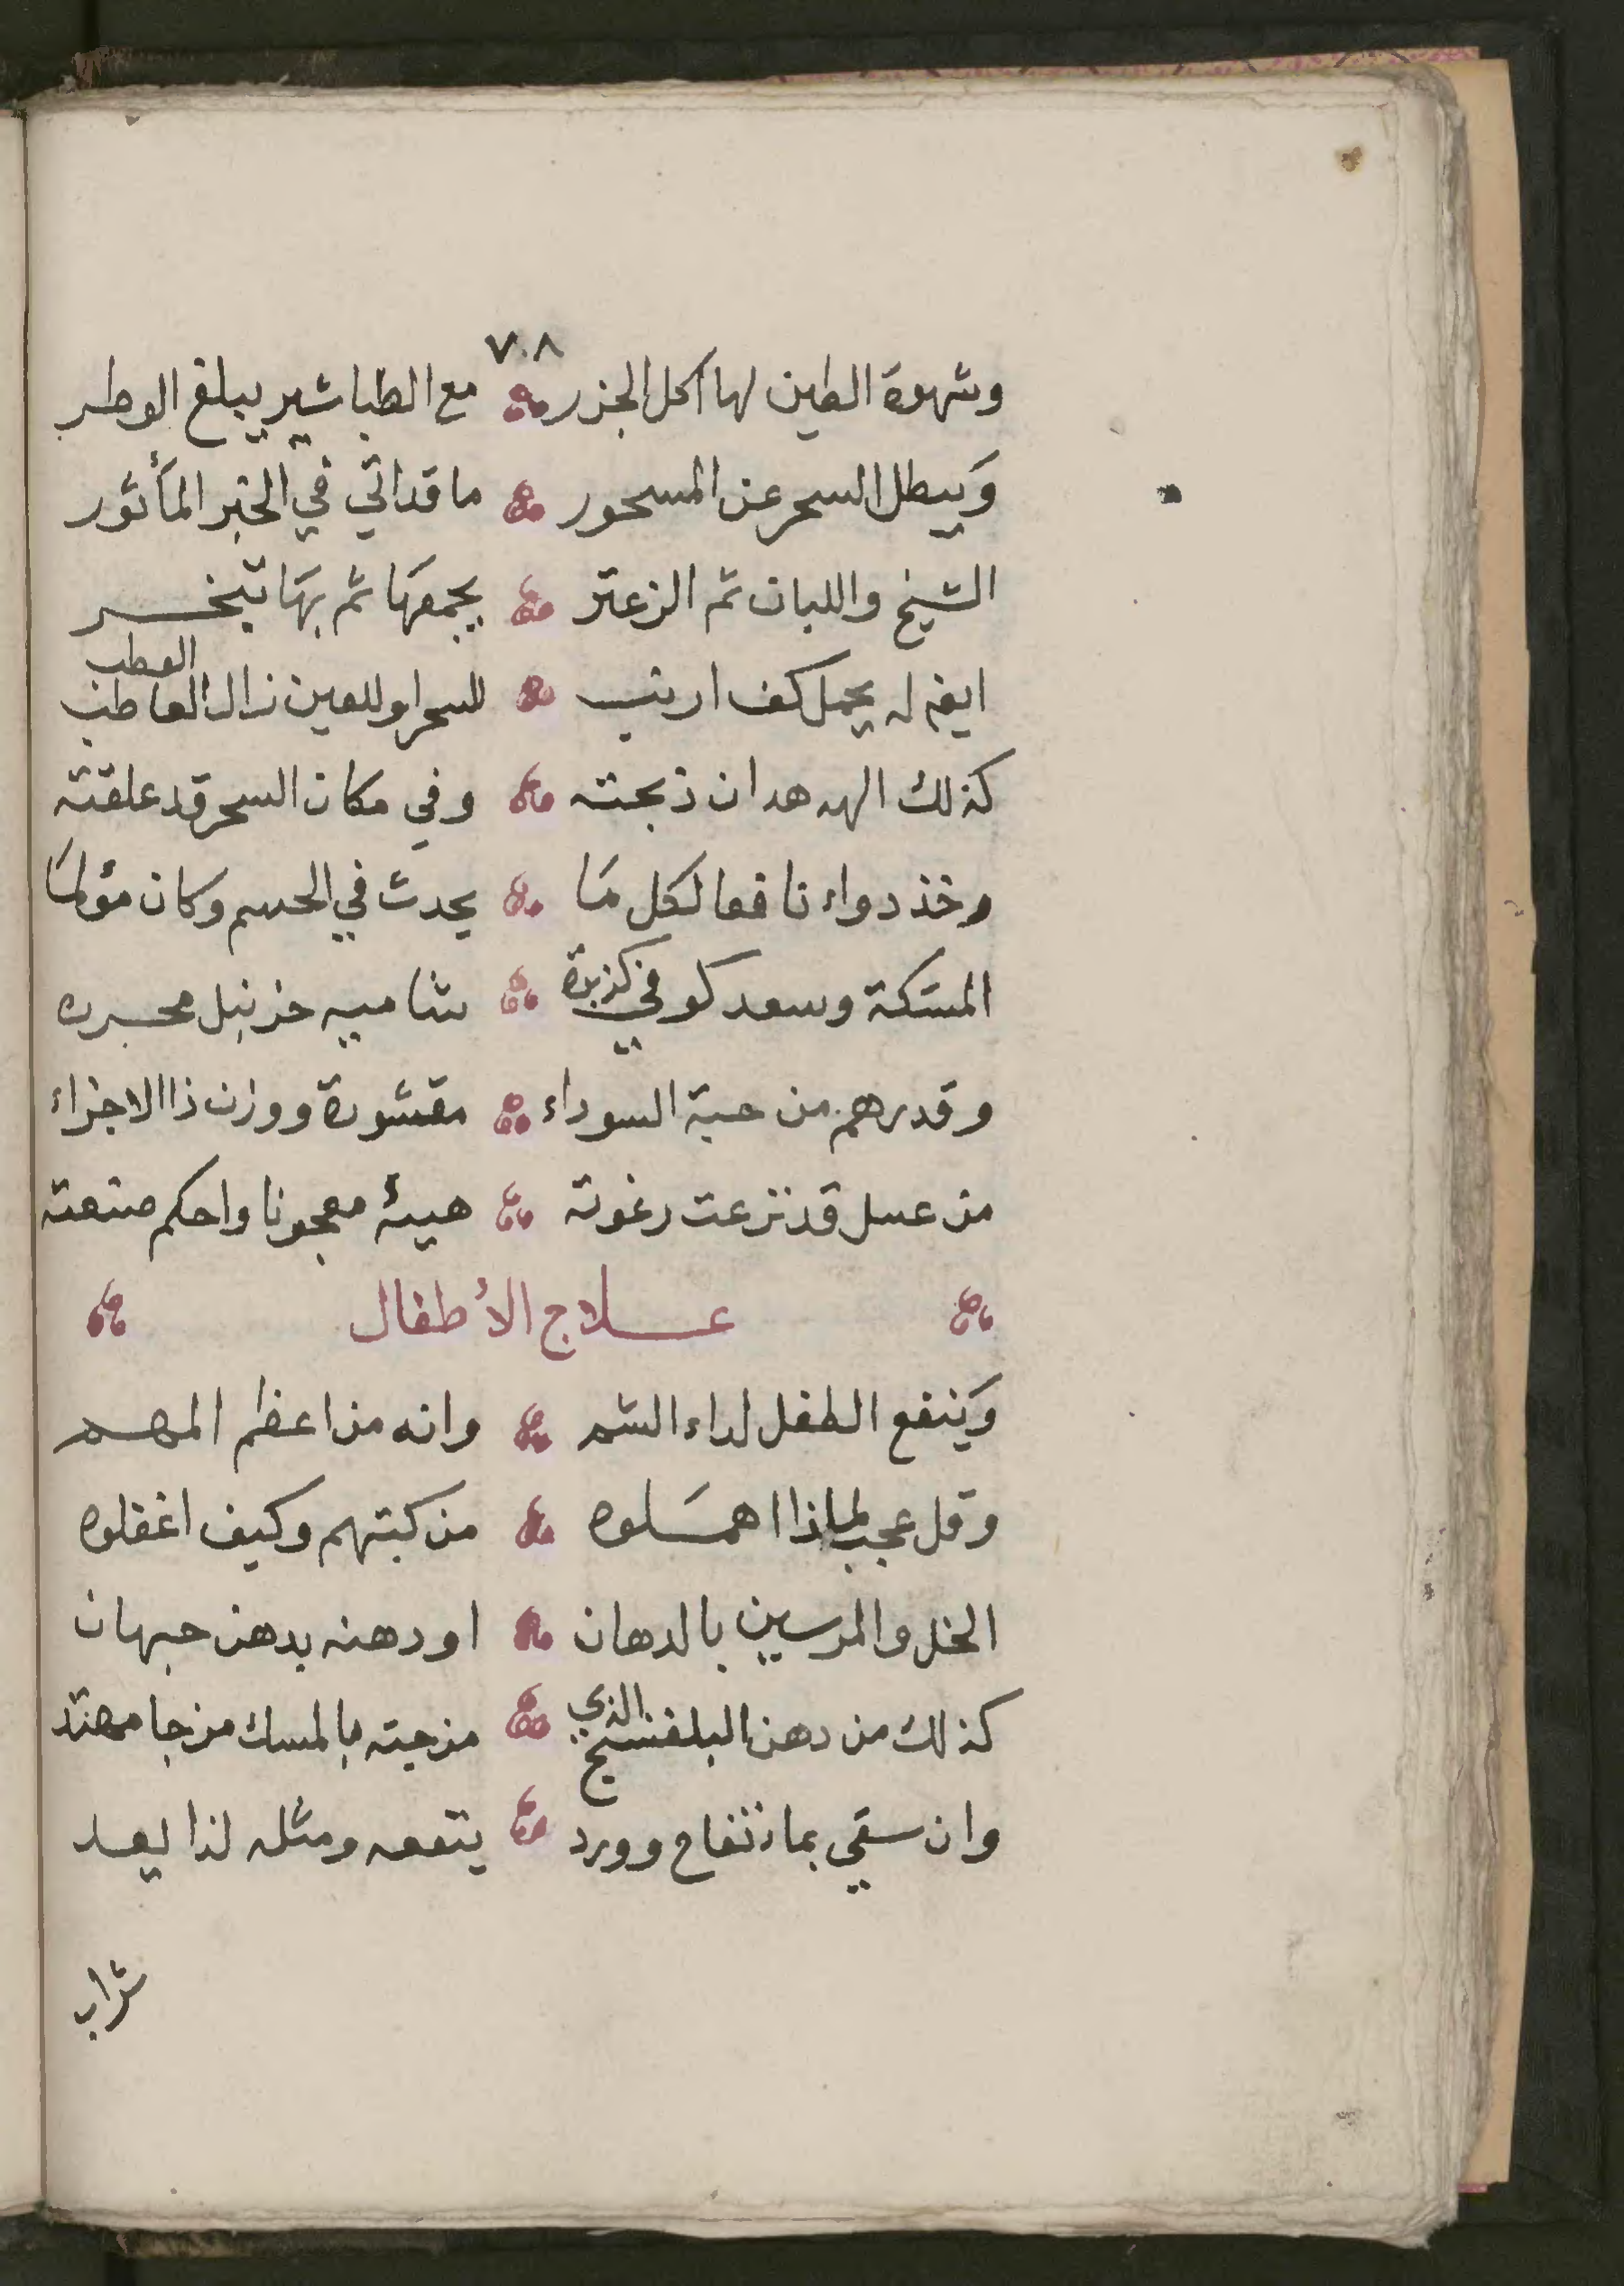 ٧٠٨
وشهوة الطين لها اكل الجزر مع الطباشير يبلغ الوطر
وَيبطل السحر عن المسحور ما قد اتي في الخبر المأثور
الشيخ واللبان ثم الزعتر يجمعهَا ثم بهَا تبخر
العطب
ايضا له يحمل كف ارنب للسحر او للعين زال العاطب
كذلك الهدهد ان ذبحته وفي مكان السحر قد علقته
وخذ دواء نافعا لكل مَا يحدث في الجسم وكان مؤلمَا
المستكة وسعد كوفي كزبرة شاميه خزنبل محبره
وقدرهم من حبة السوداء مقشورة ووزن ذا الاجزاء
من عسل قد نزعت رغوته هيئه معجونا واحكم صنعته
عـلاج الأطفال
وَينفع الطفل لداء الشم وانه من اعظم المهم
وقل عجب لماذا اهمَلوه من كبتهم وكيف اغفلوه
الخل والمرسين بالدهان او دهنه بدهن حبهان
كذلك من دهن البلفنسج الذي مزجته بالمسك مزجا مهتد
وان سقي بماء تفاح وورد ينفعه ومثله لذا يعد
شراب